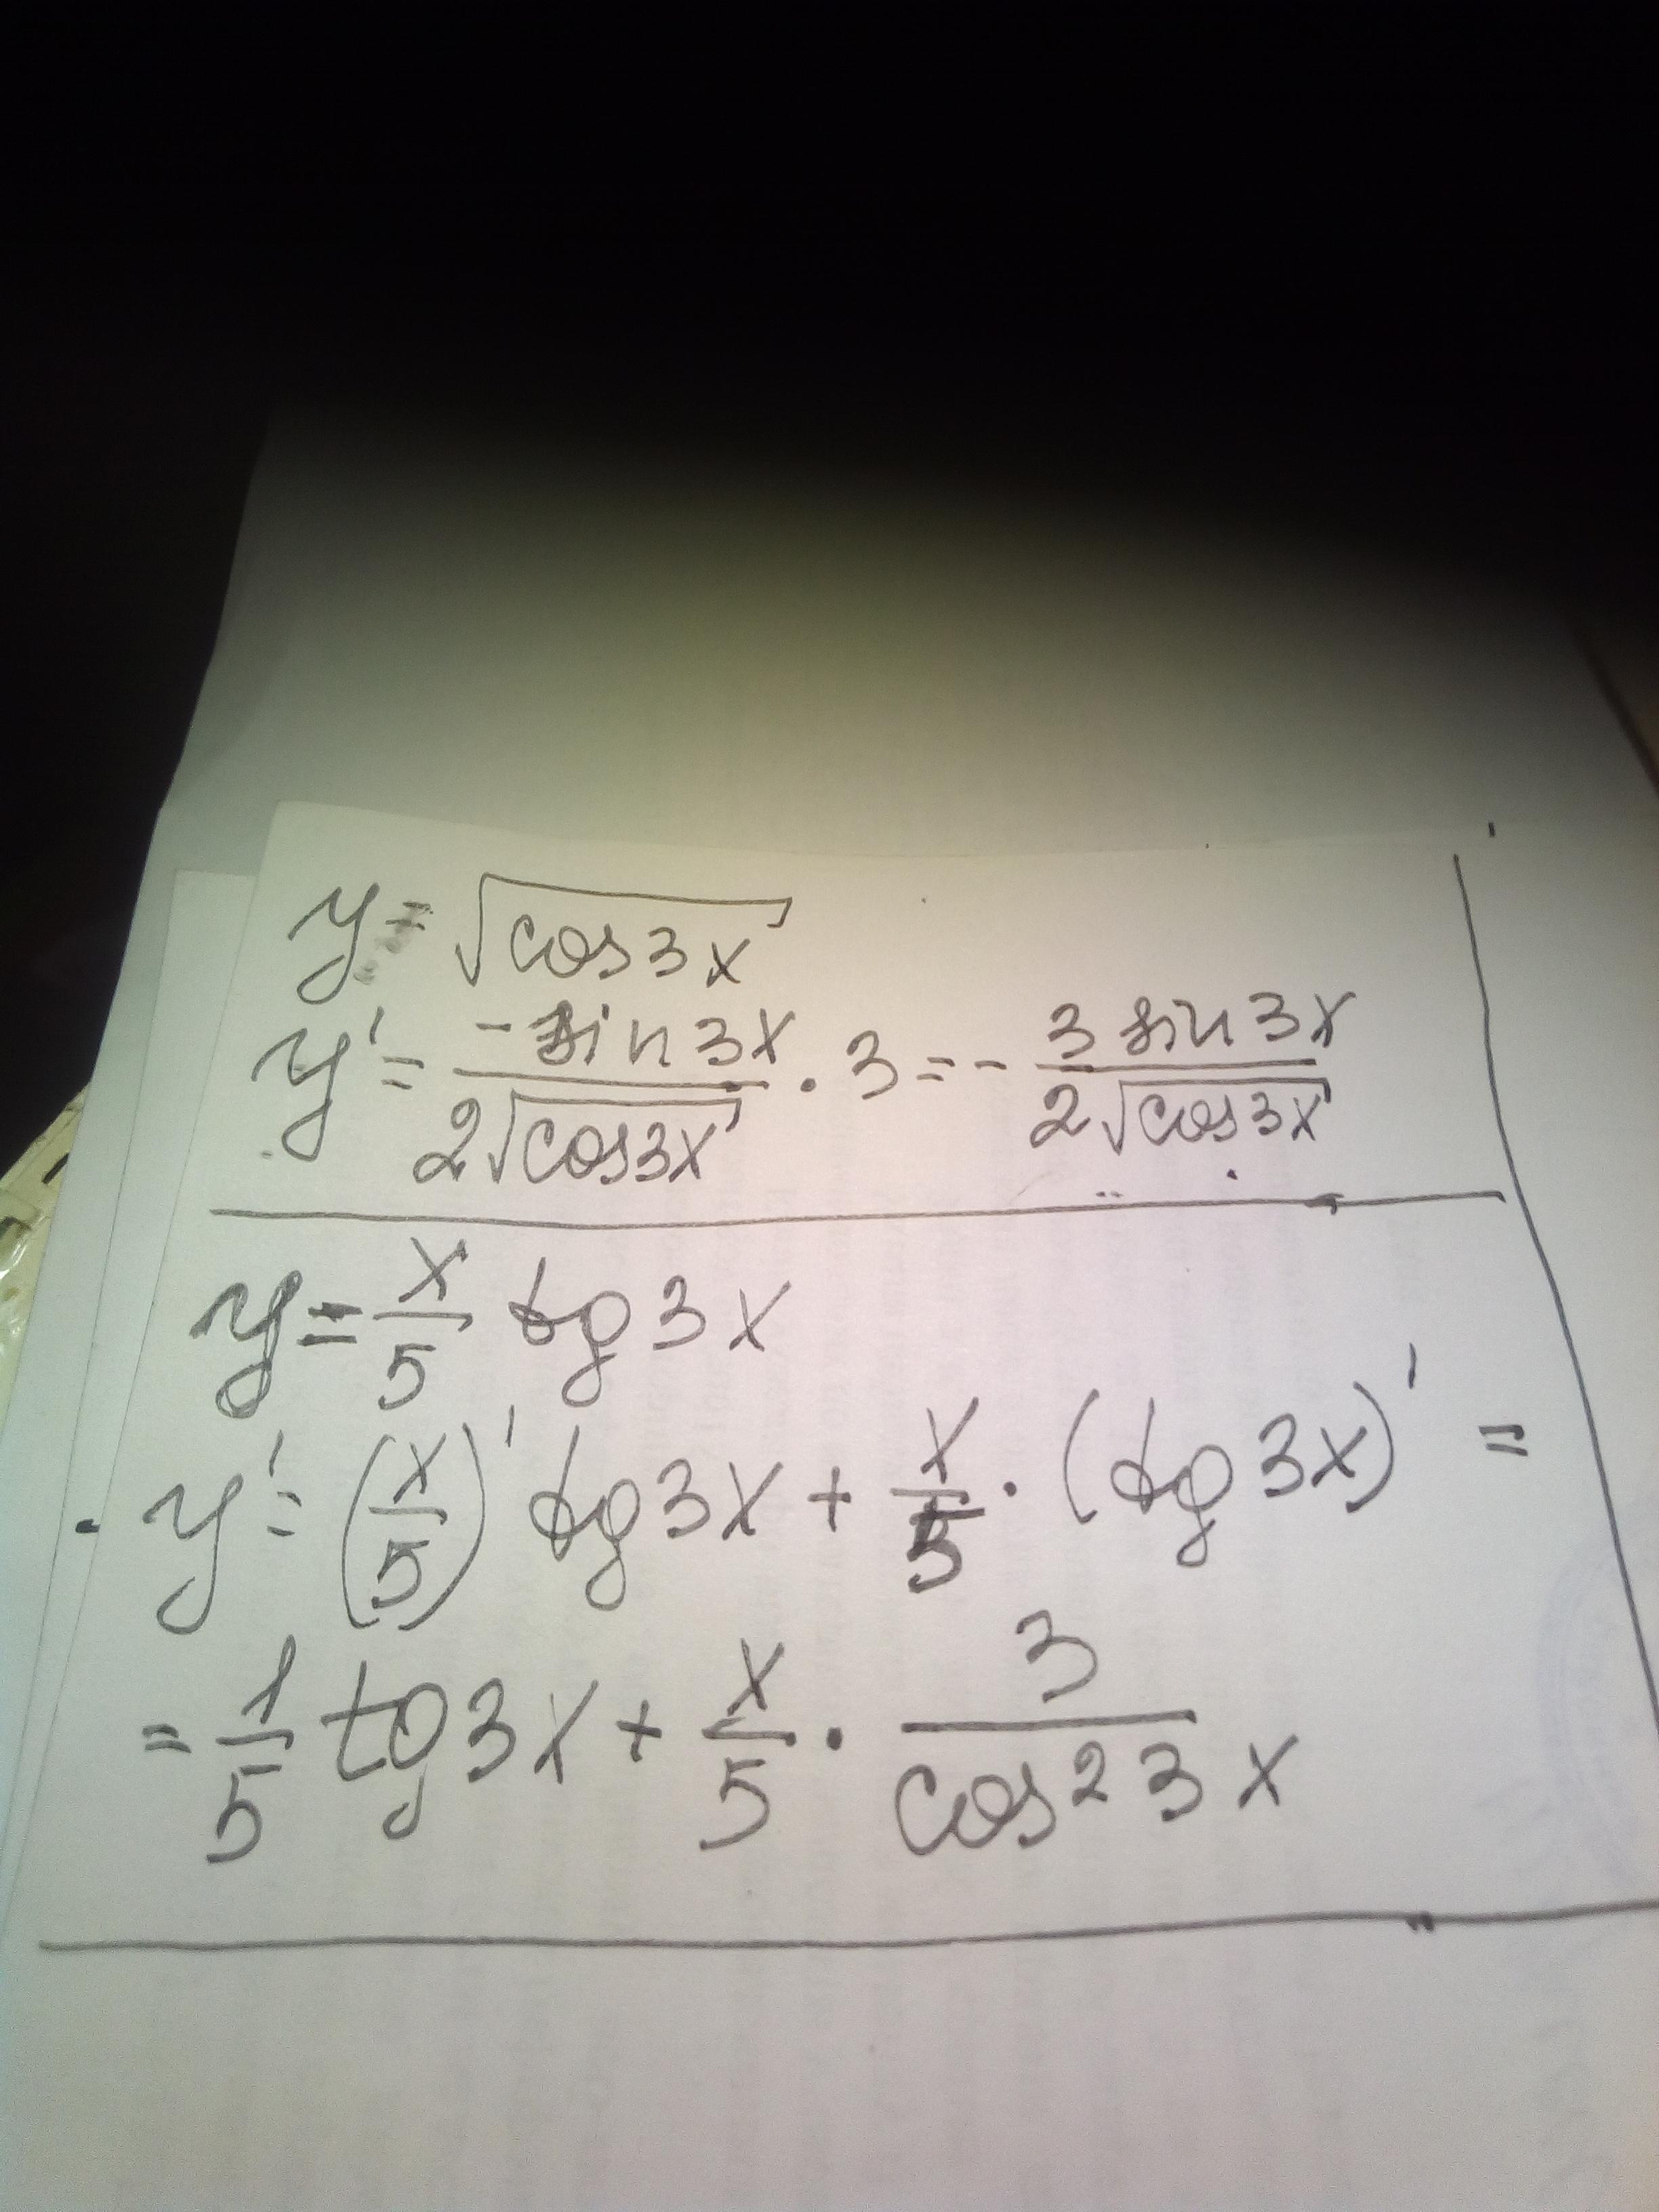 y = √cos3x
y' = -sin3x / 2√cos3x · 3 = - 3 sin3x / 2√cos3x
y = x/5 tg3x
y' = (x/5)' tg3x + x/5 · (tg3x)' =
= 1/5 tg3x + x/5 · 3 / cos² 3x